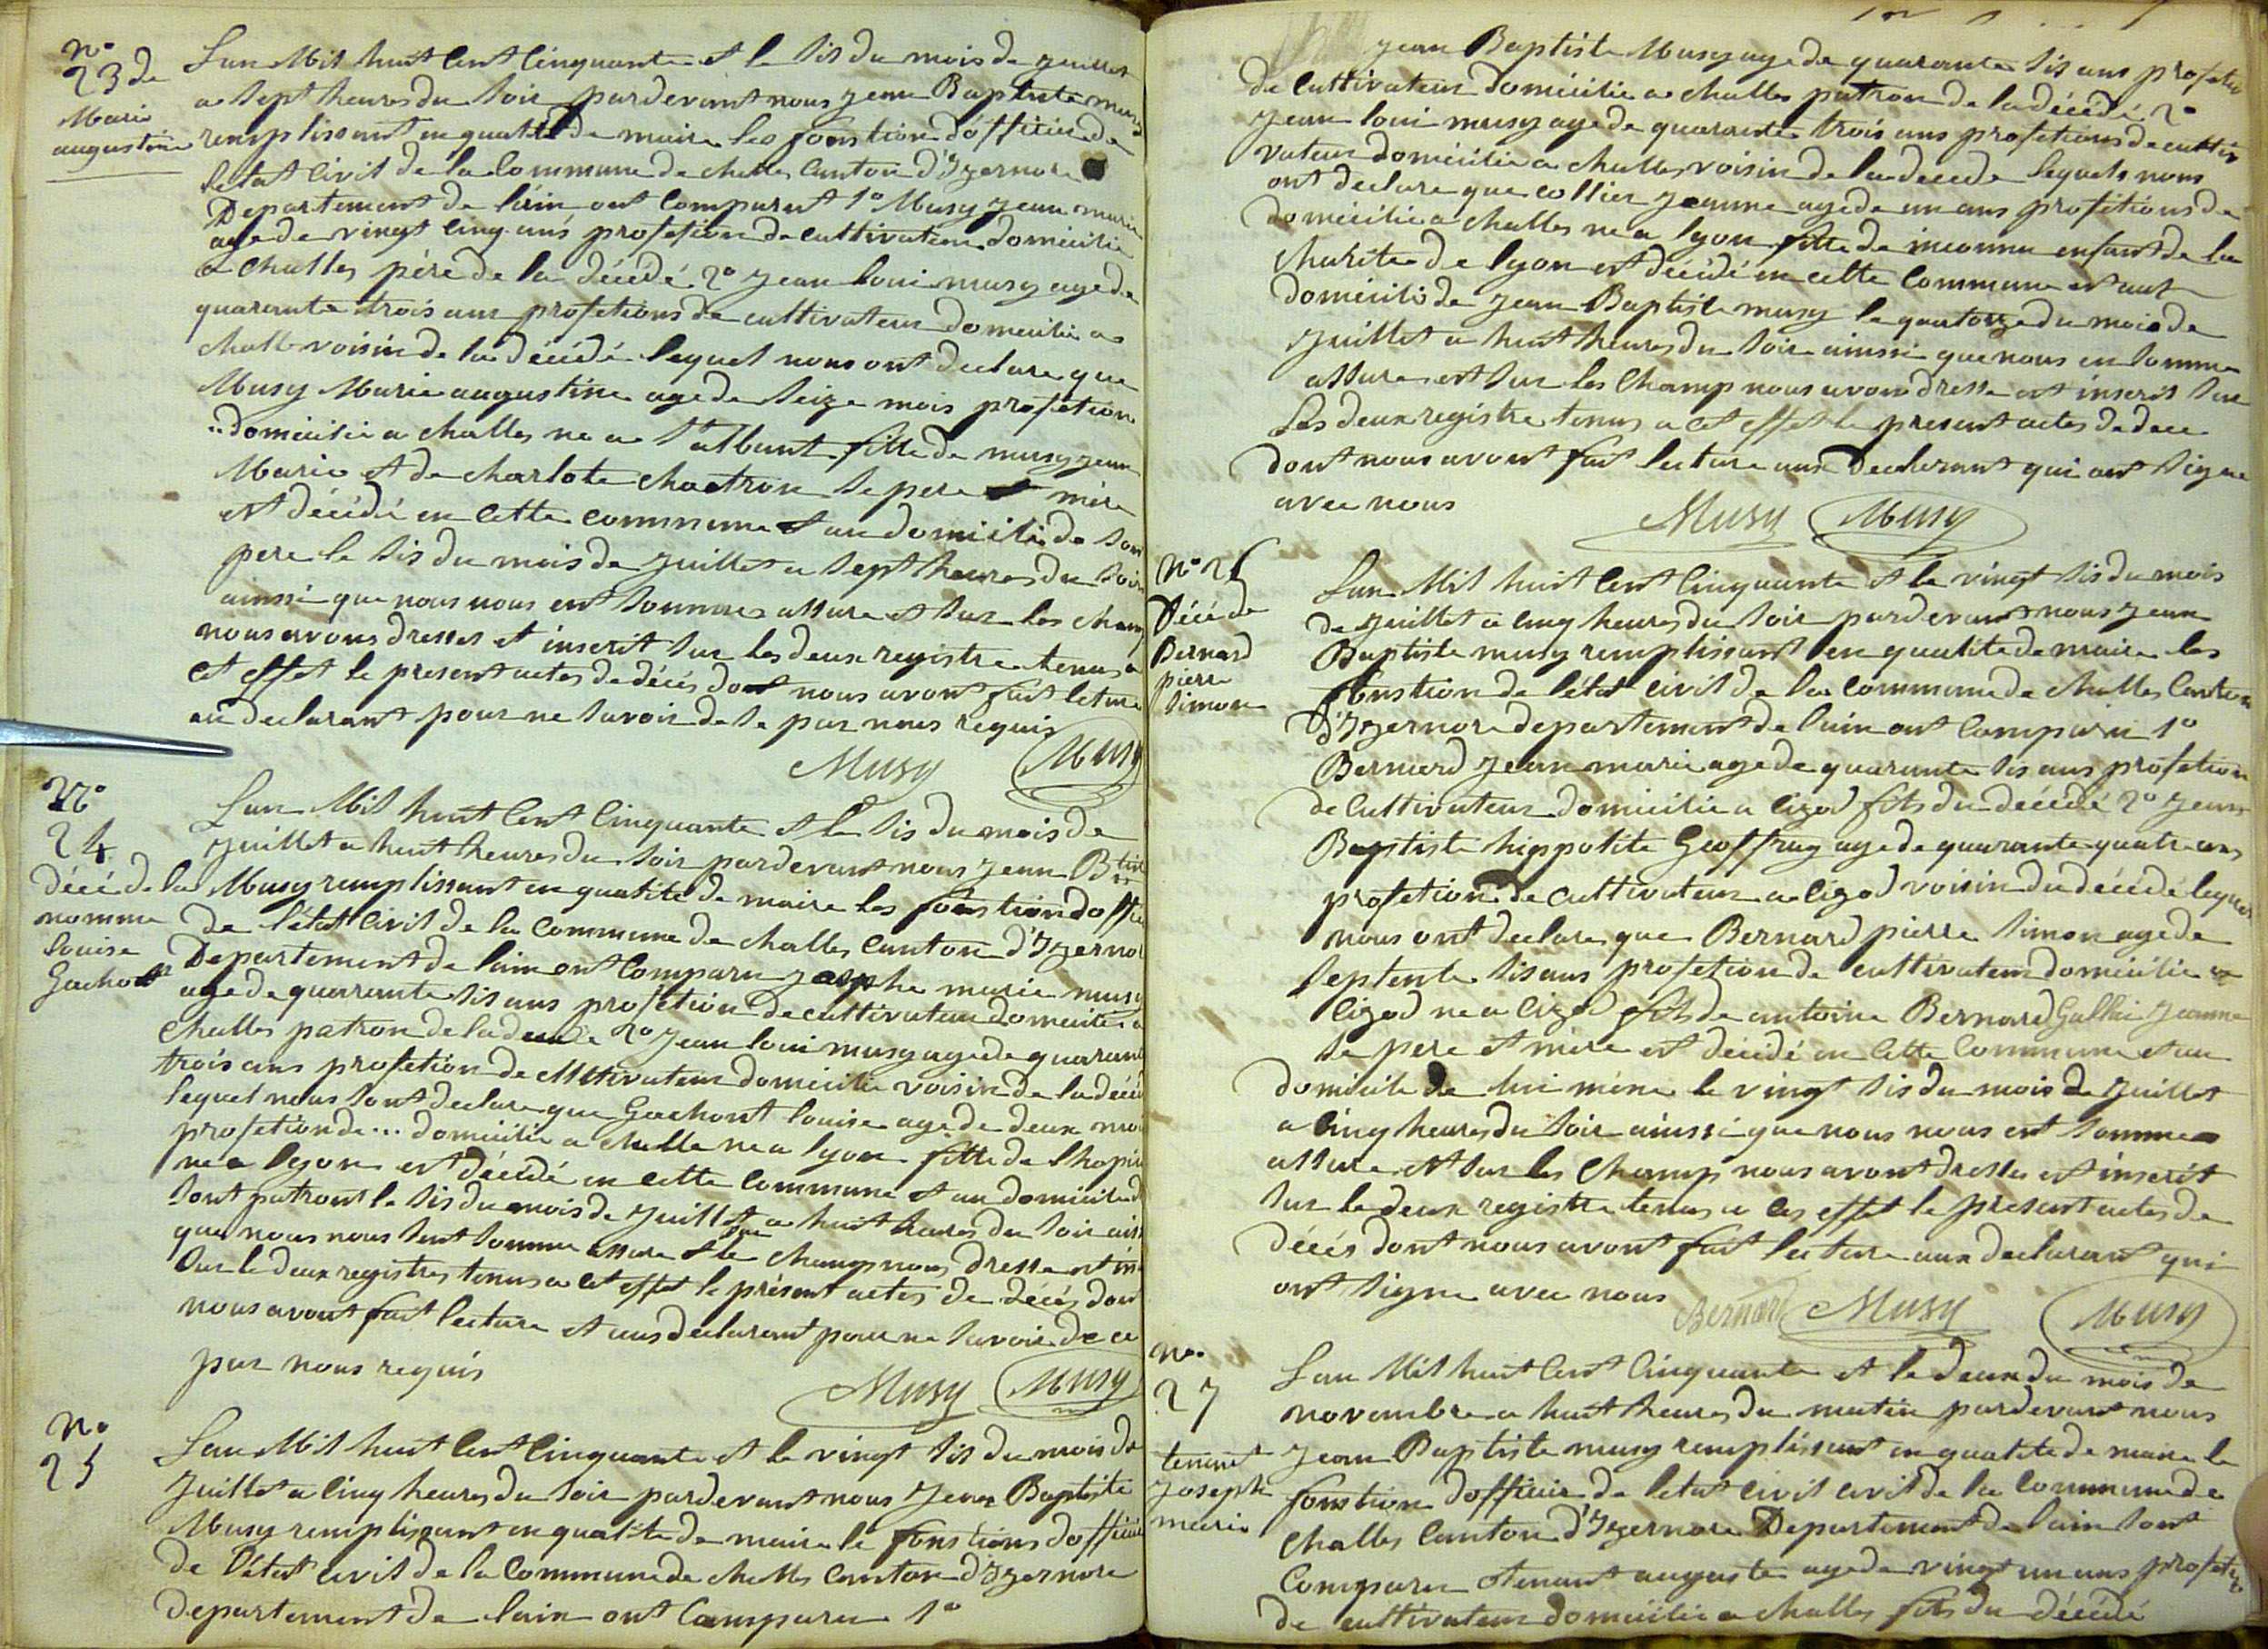 No
23 de
Marie
augustine
Lan Mil huit Cent Cinquante et le sis du mois de juillet
a sept heures du soir pardevant nous jean Baptiste musy
remplissant en qualité de maire les fonstion dofficier de
letat Civil de la Commune de challes Canton d'Izernore
Departement de lain ont Comparut 1o Musy jean marie
age de vingt cinq ans profetion de cultivateur domicilie
a Challes père de la décédé 2o jean loui musy age de
quarante trois ans profetions de cultivateur domicilie a
challe voisin de la décédé lequel nous ont declare que
Musy Marie augustine age de seize mois profetion
.. domicilie a challes ne a St alban fille de musy jean
Marie et de charlote chatron se pere et mère
est décédé en cette commune et au domicilie de son
pere le sis du mois de juillet a sept heures du soir
ainssi que nous nous ent somme assure et sur les champ
nous avons dresses et inscrit sur les deux registre tenus a
cet effet le present actes de décés dont nous avont fait leture
au declarant pour ne savoir de se par nous requis
Musy Musy
No
24
décé de la
nomme
louise
Gachont
Lan Mil huit Cent Cinquante et le sis du mois de
juillet a huit heures du soir pardevant nous jean Btiste
Musy remplissant en qualité de maire les fonstion doffi
de l'état Civil de la Commune de challes Canton d'Izernor
Departement de lain ont Comparu josphe marie musy
age de quarante sis ans profetion de cultivateur domicilie a
Challes patron de la décédé 2o jean loui musy age de quarant
trois ans profetion de cultivateur domicilie voisin de la décé
lequel nous sont declare que Gachont louise age de deux moi
profetion de ... domicilie a challe ne a lyon fille de lhopi
ne a lyon est décédé en cette Commune et au domicile d
sont patront le sis du mois de juillet a huit heures du soir ains
que nous nous sent somme assure et sur le champ nous dresse et in
sur le deux registres tenus a cet effet le présent actes de décés don
nous avont fait lecture et aus declarant pour ne savoir de ce
par nous requis
Musy Musy
No
25
Lan Mil huit Cent Cinquante et le vingt sis du mois de
Juillet a cinq heures du soir pardevant nous Jean Baptiste
Musy remplissant en qualite de maire le fonstions dofficier
de l'état civil de la Commune de challes canton d'Izernore
departement de lain ont Comparu 1o
jean Baptiste Musy age de quarante sis ans profetion
de cultivateur domicilie a challes patron de la décédé 2o
jean loui musy age de quarante trois ans profetions de cultiv
vateur domicilie a challes voisin de la decede lequels nous
ont declare que collier jeanne age de un ans profetions de
domicilie a challes ne a lyon fille de inconnu enfant de la
charite de lyon est décédé en cette Commune et aut
domicile de jean Baptiste musy le quatorze du mois de
juillet a huit heures du soir ainssi que nous en somme
assure et sur les Champ nous avon dresse et inscrit sur
Les deux registre tenus a cet effet le present actes de dece
dont nous avont fait lecture aux declarant qui ont signe
avec nous
Musy Musy
No 26
Décé de
Bernard
pierre
simon
Lan Mil huit Cent Cinquante et le vingt sis du mois
de juillet a cinq heures du soir pardevant nous jean
Baptiste musy remplissant en qualite de maire les
fonstion de l'état civil de la commune de challes Canton
d'Izernore departement de lain ont Comparu 1o
Bernard jean marie age de quarante sis ans profetion
de Cultivateur domicilie a cizod fils du décédé 2o jean
Baptiste hippolite Geoffray age de quarante quatre ans
profetion de cultivateur a cizod voisin du décédé lequel
nous ont declare que Bernard pierre simon age de
septente sis ans profetion de cultivateur domicilie a
cizod ne a cizod fils de antoine Bernard Gallai jeanne
se pere et mere est décédé en cette Commune et au
domicile de lui mème le vingt sis du mois de juillet
a cinq heures du soir ainssi que nous nous ent somme
assure et sur les Champ nous avont dresse et inscrit
sur le deux registre tenus a ces effet le present actes de
décés dont nous avont fait lecture aux declarant qui
ont signe avec nous
Bernard Musy Musy
No
27
tenant
joseph
marie
Lan Mil huit Cent Cinquante et le deux du mois de
novembre a huit heures du matin pardevant nous
Jean Baptiste musy remplissant en qualite de maire le
fonstion dofficier de letat civil civil de la commune de
challes Canton d'Izernore Departement de lain sont
Comparu tenant auguste age de vingt un ans profetio
de cultivateur domicilie a challes fils du décédé